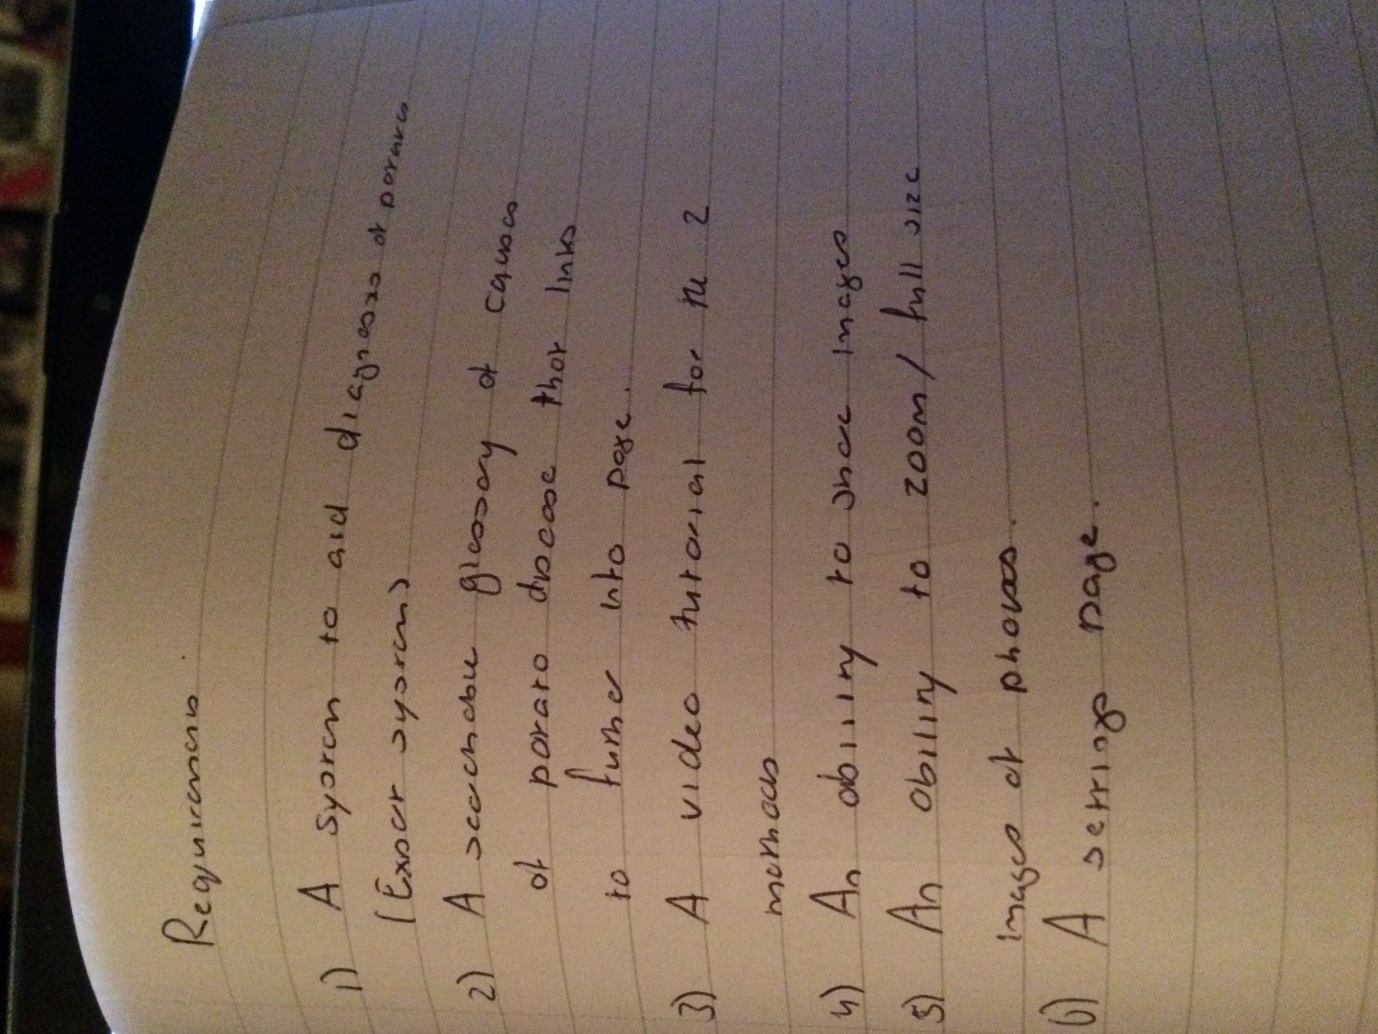 Requirements.
1) A system to aid diagnosis of potato
(Expert system)
2) A searchable glossary of causes
of potato disease that links
to further info page.
3) A video tutorial for the 2
methods
4) An ability to share images
5) An ability to zoom / full size
images of photos.
6) A settings page.